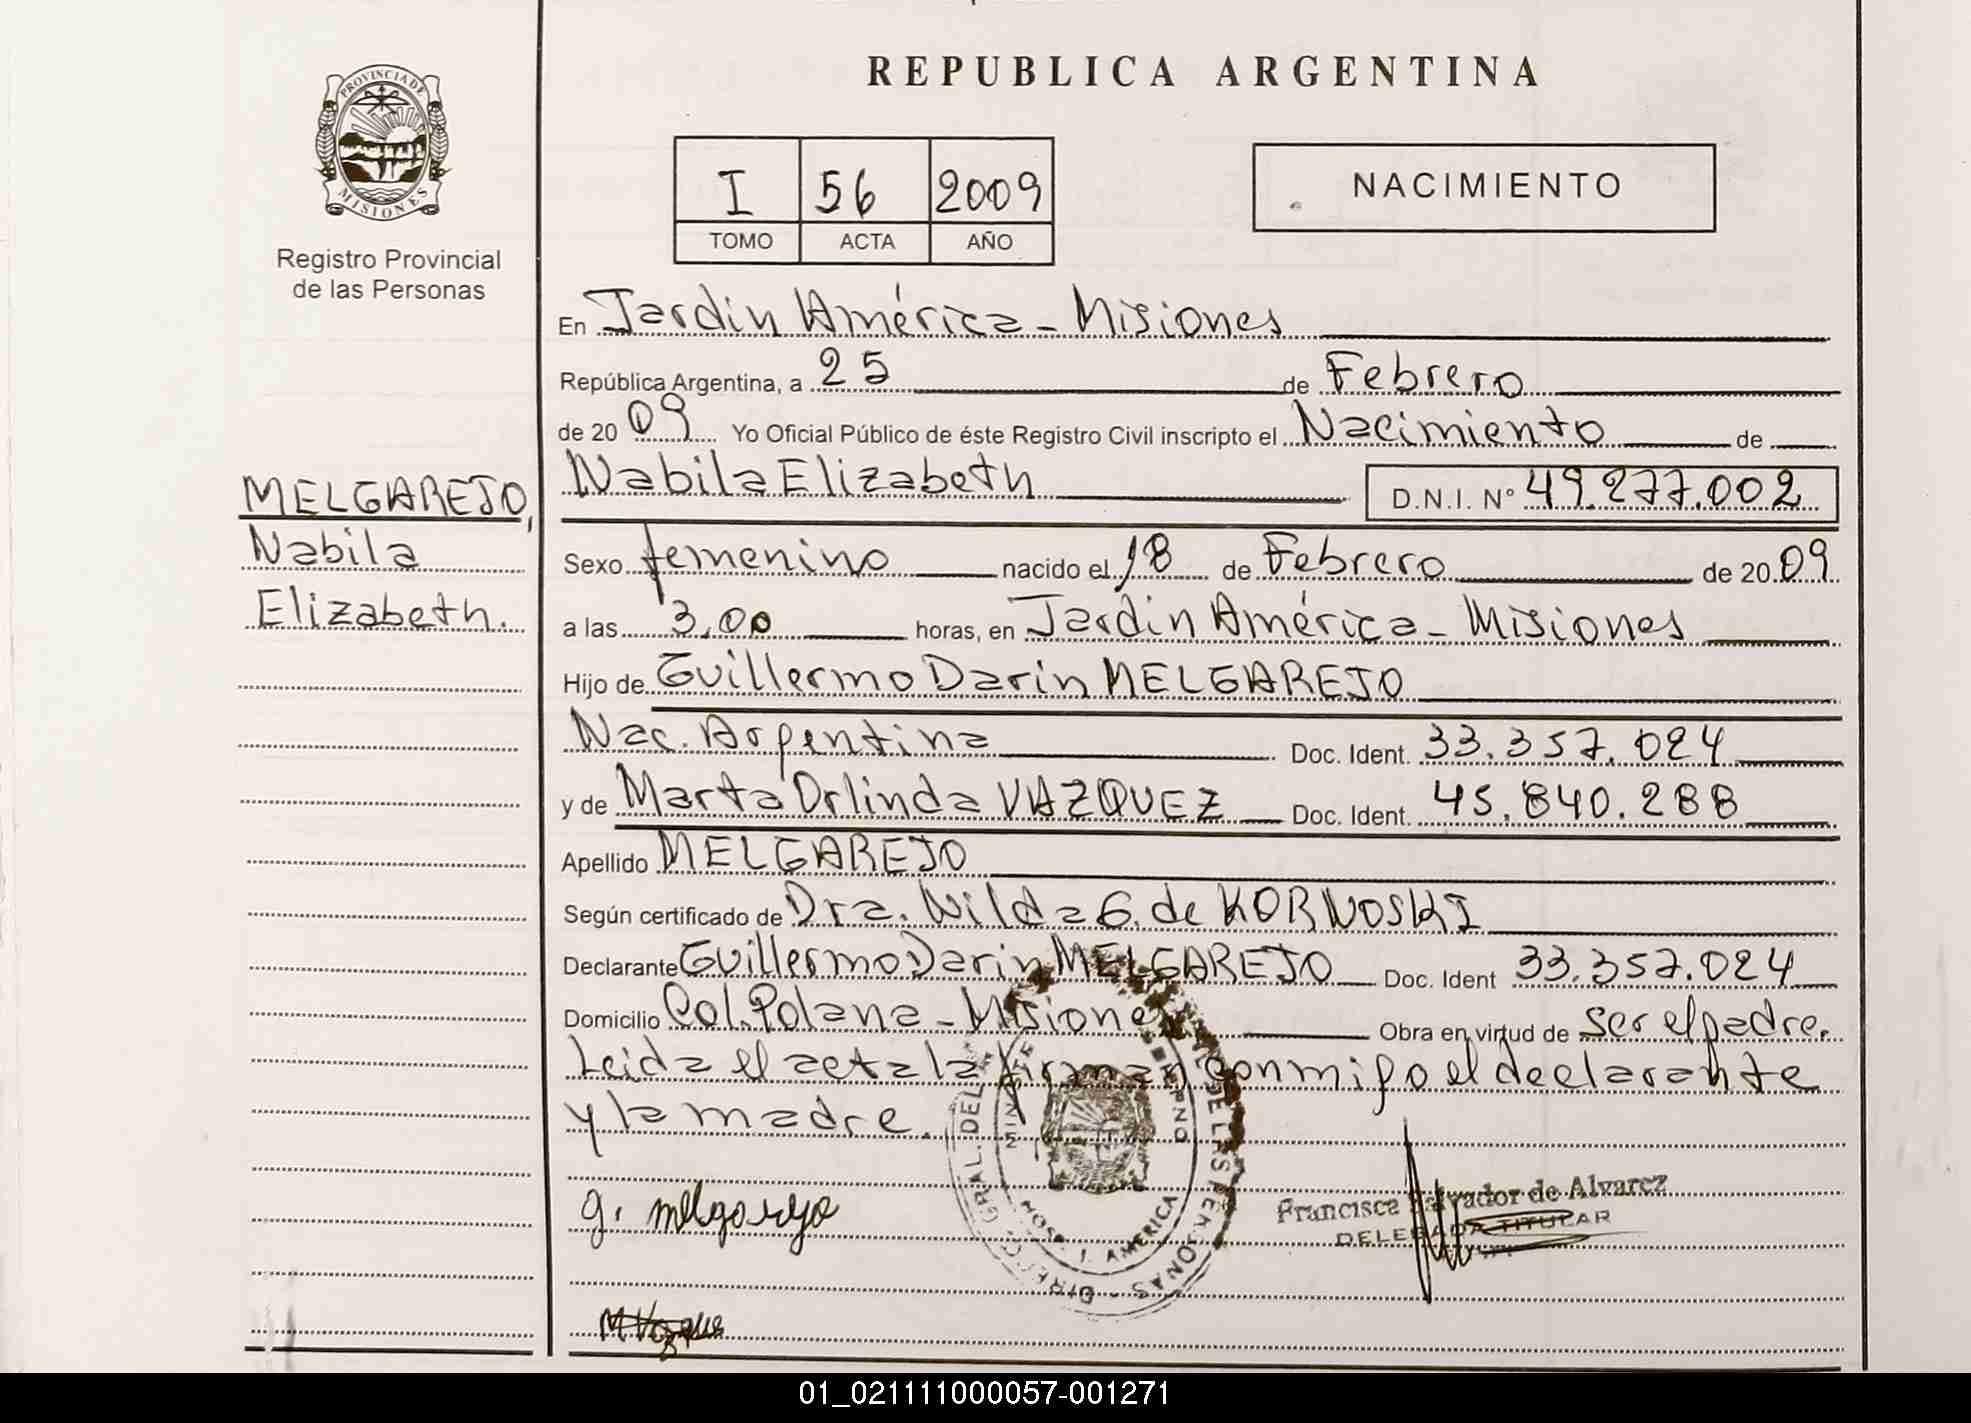 REPUBLICA ARGENTINA
PROVINCIA DE
MISIONES
Registro Provincial
de las Personas
I 56 2009
TOMO ACTA AÑO
NACIMIENTO
MELGAREJO,
Nabila
Elizabeth.
En Jardín América - Misiones
República Argentina, a 25 de Febrero
de 2009 Yo Oficial Público de éste Registro Civil inscripto el Nacimiento de
Nabila Elizabeth D.N.I. N° 49.277.002
Sexo femenino nacido el 18 de Febrero de 2009
a las 3,00 horas, en Jardín América - Misiones
Hijo de Guillermo Darin MELGAREJO
Nac. Argentina Doc. Ident. 33.357.024
y de Marta Orlinda VAZQUEZ Doc. Ident. 45.840.288
Apellido MELGAREJO
Según certificado de Dra. Wilda G. de KORNOSKI
Declarante Guillermo Darin MELGAREJO Doc. Ident 33.357.024
Domicilio Col. Polana - Misiones Obra en virtud de ser el padre.
Leida el acta la firman conmigo el declarante
y la madre.
g. melgarejo
Francisca Salvador de Alvarez
DELEGADA TITULAR
DIRECC. GRAL. DEL DE LAS PERSONAS
HOSP. J. AMERICA
M Vazques
01_021111000057-001271